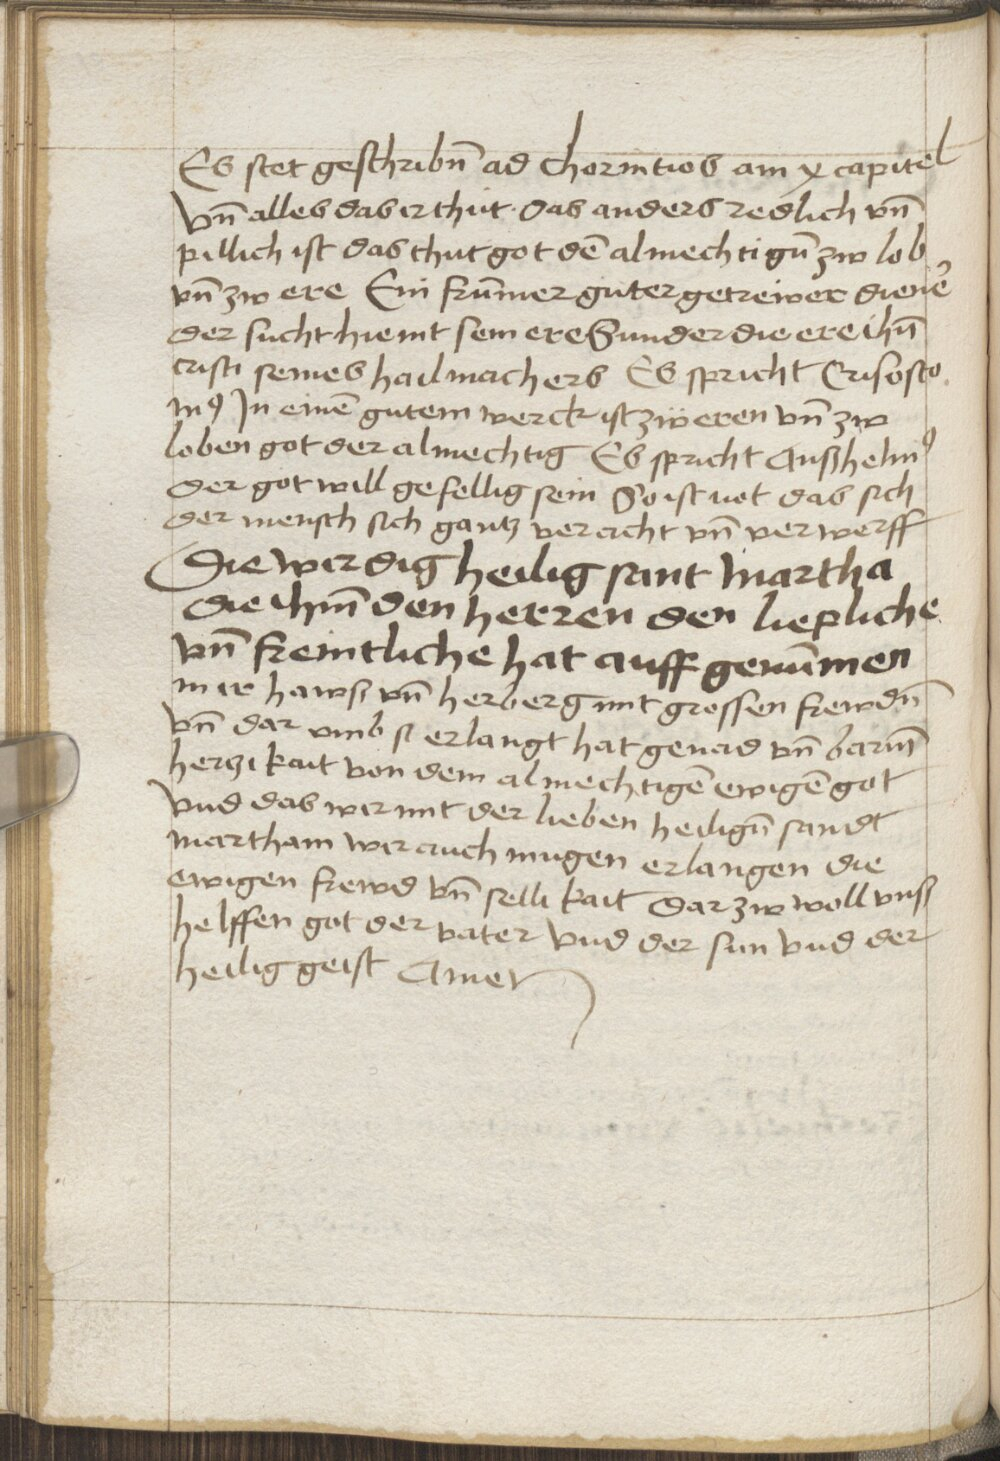 Es stet geschribn̄ ad Chorintios am x capitel
Vn̄ alles das ir thut · das anders redlich vn̄
pillich ist das thut got dē almechtign̄ zw lob
vn̄ zw ere Ein frūmer guter getreiwer diene᷑
der sucht hie nit sein ere Sunder die ere ihū
cristi seines hailmachers Es spricht Crisosto
mꝯ In einē gutem werck ist zw eren vn̄ zw
loben got der almechtig Es spricht Anßhelmꝯ
der got will gefellig sein So ist not das sich
der mensch sich gantz veracht vn̄ verwerff
Die wirdig heilig sant Martha
die ihm̄ den herren den liepliche
vn̄ freintliche hat auff genūmen
in ir hawß vn̄ herberg mit grossen frewdn̄
vn̄ dar vmb si erlangt hat genad vn̄ barm̄
hertzikait von dem almechtigē ewigē got
Vnd das wir mit der lieben heilign̄ sandt
martham wir auch mugen erlangen die
ewigen frewd vn̄ sellikait dar zw woll vnß
helffen got der vater vnd der sun vnd der
heilig geist Amen